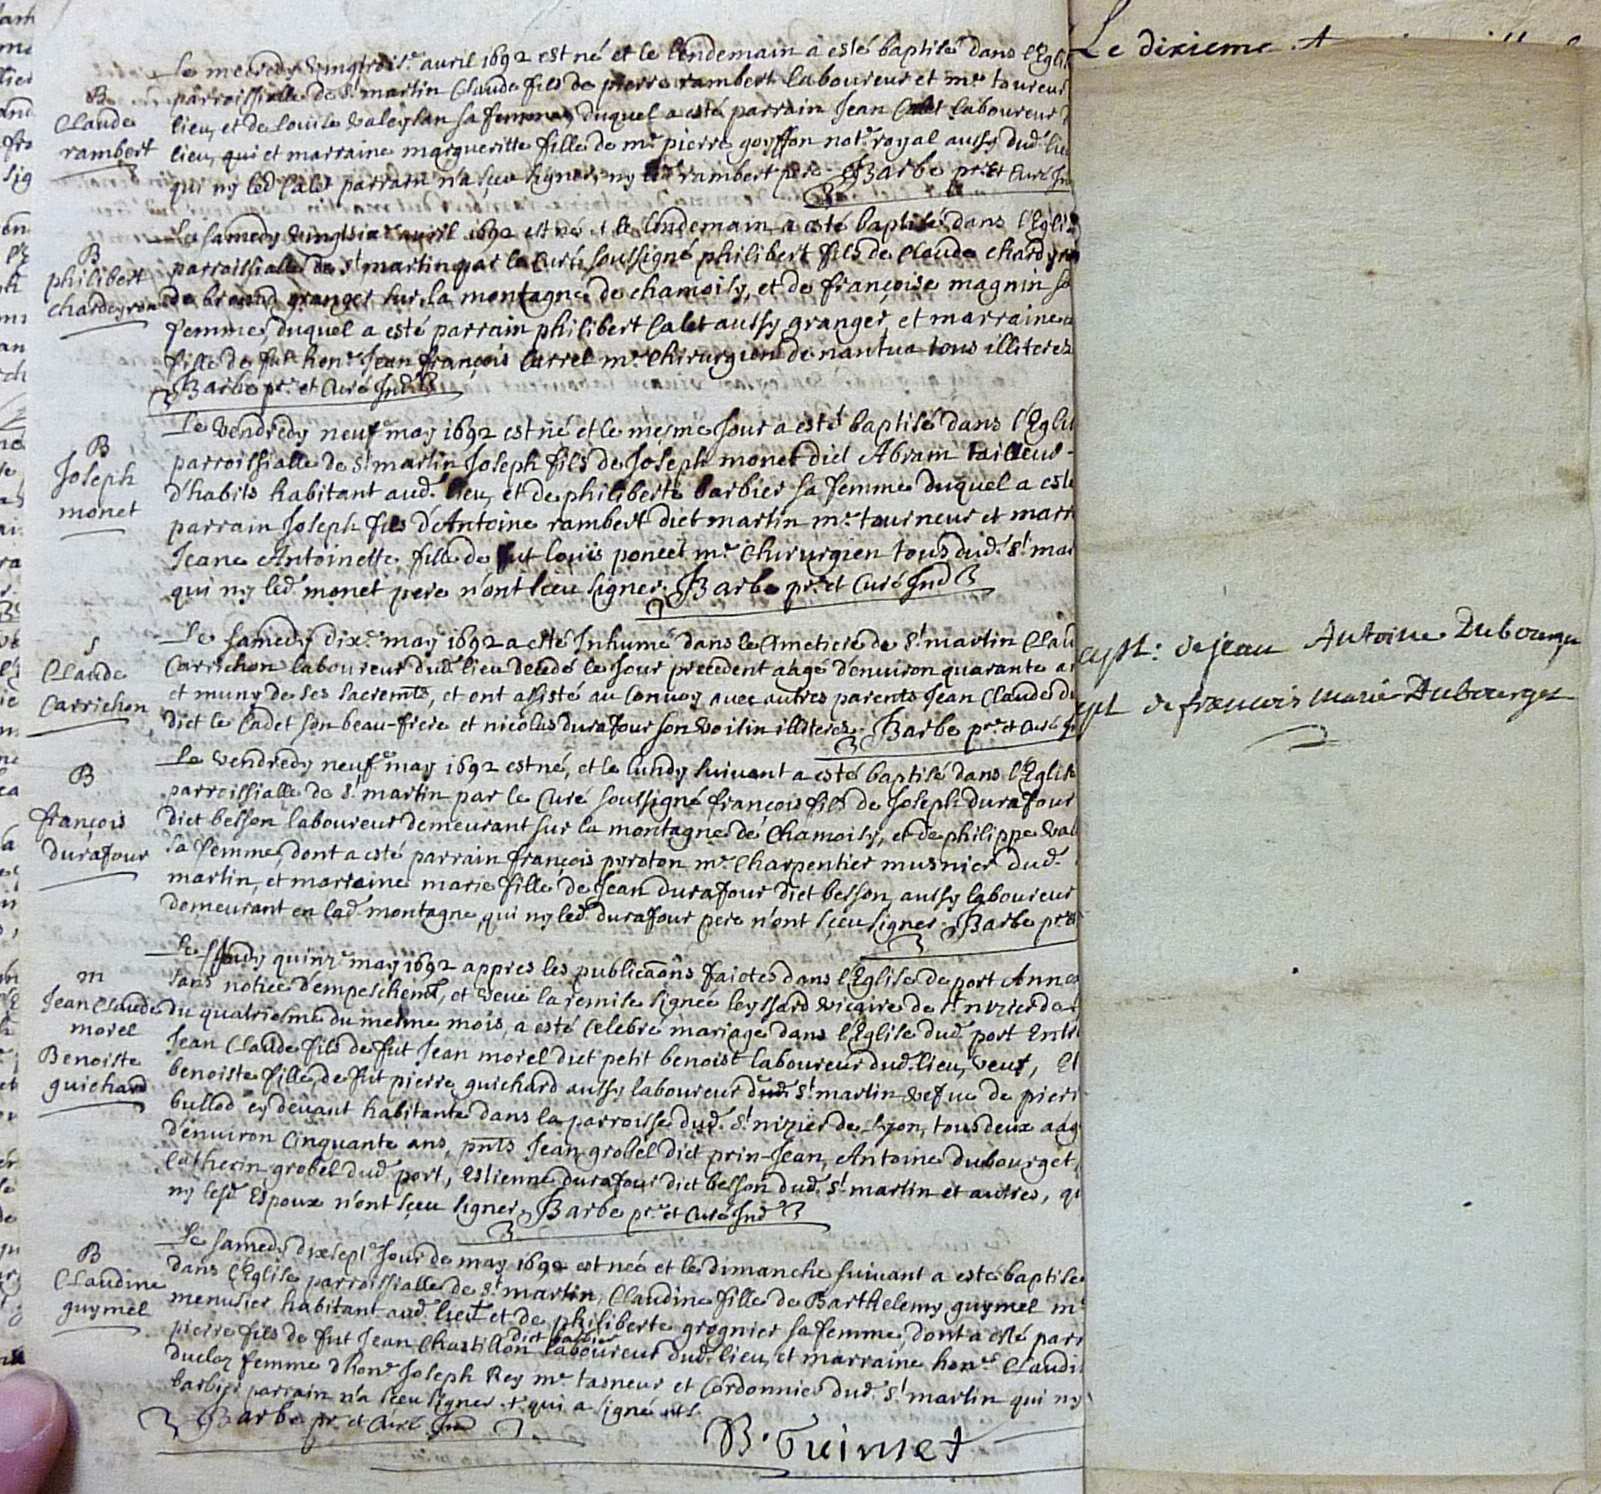 B
Claude
rambert
Le mecredy vingtrois.e avril 1692 est né et le lendemain a esté baptisé dans l'Eglis
parroissialle de St martin Claude fils de pierre rambert laboureur et m.e toureur
lieu, et de Louise valeysan sa femme, duquel a esté parrain Jean Calet laboureur d
lieu, qui et marraine margueritte fille de m.e pierre goyffon not.e royal aussy dud. lieu
qui ny led Calet parrain n'a sçeu signer, ny led rambert pere. Barbe p.re et Curé Ind
B
philibert
chardeyron
Le samedy vingtsix.e avril 1692 est né et le lendemain a esté baptisé dans l'Eglis
parroissialle de St martin par le Curé soussigné philibert fils de Claude chardeyron
de bround granger sur la montagne de chamoisy, et de françoise magnin sa
femme, duquel a esté parrain philibert Calet aussy granger, et marraine
fille de fut hon.e Jean françois Carrel m.e Chirurgien de nantua tous illiterez
Barbe p.re et Curé Ind
B
Joseph
monet
Le vendredy neuf.e may 1692 est né et le mesme Jour a esté baptisé dans l'Eglis
parroissialle de St martin Joseph fils de Joseph monet dict Abram tailleur
d'habits habitant aud. lieu, et de philiberte barbier sa femme duquel a esté
parrain Joseph fils d'Antoine rambert dict martin m.e tourneur et marr
Jeane Antoinette fille de fut louis poncet m.e Chirurgien tous dud. St mar
qui ny led. monet pere n'ont sceu signer. Barbe p.re et Curé Ind
S
Claude
Carrichon
Le samedy dix.e may 1692 a esté Inhumé dans le Cimetiere de St martin Clau
Carrichon laboureur dud. lieu decedé le Jour precedent aagé d'environ quarante a
et muny de ses sacrem.ts, et ont assisté au Convoy avec autres parents Jean Claude du
dict le Cadet son beau-frere et nicolas durafour son voisin illiterez. Barbe p.re et Curé
B
françois
durafour
Le vendredy neuf.e may 1692 est né, et le lundy suivant a esté baptisé dans l'Eglise
parroissialle de St martin par le Curé soussigné françois fils de Joseph durafour
dict besson laboureur demeurant sur la montagne de Chamoisy, et de philippe val
sa femme, dont a esté parrain françois peroton m.e Charpentier musnier dud.
martin, et marraine marie fille de Jean durafour dict besson aussy laboureur
demeurant en lad. montagne, qui ny led. durafour pere n'ont sçeu signer. Barbe p.re
m
Jean Claude
morel
Benoiste
guichard
Le Jeudy quinz.e may 1692 appres les publicaons faictes dans l'Eglise de port Annex
sans notice d'empeschem.t, et veue la remise signée leyssard vicaire de St nizier de
du quatriesme du mesme mois, a esté Celebré mariage dans l'Eglise dud. port Entre
Jean Claude fils de fut Jean morel dict petit benoist laboureur dud. lieu, veuf, Et
benoiste fille de fut pierre guichard aussy laboureur dud. St martin vefve de pierr
bullod cy devant habitante dans la parroisse dud. St nizier de Lyon, tous deux aag
d'environ Cinquante ans, pnts Jean grobel dict prin-Jean, Antoine dubourget,
Catherin grobel dud. port, Estienne durafour dict besson dud. St martin et autres, qu
ny lesd. Espoux n'ont sçeu signer. Barbe p.re et Curé Ind
B
Claudine
guymel
Le samedy dixsept.e Jour de may 1692 est née et le dimanche suivant a esté baptisée
dans l'Eglise parroissialle de St martin, Claudine fille de Barthelemy guymel m.e
menusier habitant aud. lieu et de philiberte grognier sa femme, dont a esté parr
dict barbier
pierre fils de fut Jean Chastillon laboureur dud. lieu, et marraine hon.e Claudi
ducloz femme d'hon.e Joseph Rey m.e tasneur et Cordonnier dud. St martin qui ny
barbier parrain n'a sceu signer + qui a signé
Barbe p.re et Curé Ind
B. Guimet
Le dixieme
de Jean Antoine Dubourget
de francois marie Dubourget